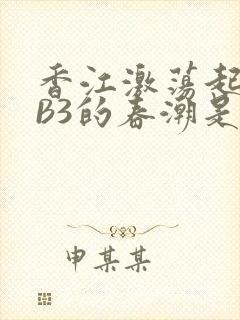 香江激荡起
B3的春潮是
申某某